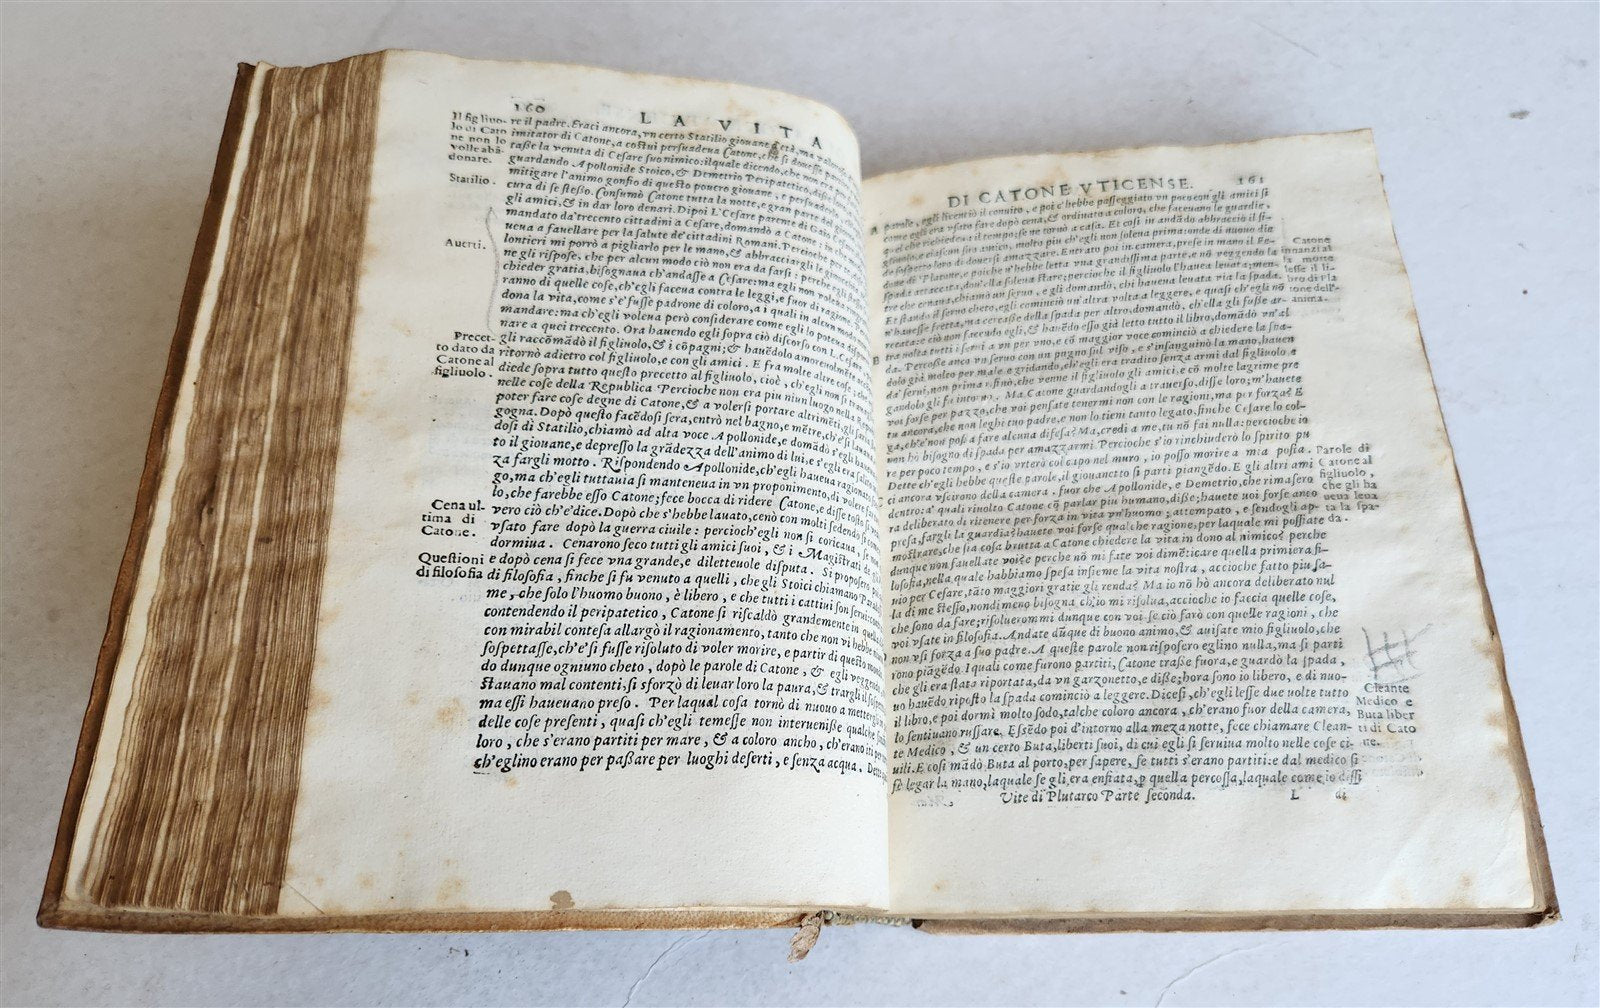 160
LA VITA
Il figliuo-
lo di Cato
ne non lo
volle abã-
donare.
Statilio.
Auerti.
Precet-
to dato da
Catone al
figliuolo.
Cena ul-
tima di
Catone.
Questioni
di filosofia
re il padre. Eraci ancora, vn certo Statilio giouane
imitator di Catone, a costui persuadeua Catone, che si douesse
taße la venuta di Cesare suo nimico: ilquale dicendo, che non era per
guardando Apollonide Stoico, & Demetrio Peripatetico, disse
mitigare l'animo gonfio di questo pouero giouane, e persuadergli
cura di se steßo. Consumò Catone tutta la notte, e gran parte del giorno
gli amici, & in dar loro denari. Dipoi L. Cesare parente di Gaio Cesare
mandato da'trecento cittadini a Cesare, domandò a Catone
ueua a fauellare per la salute de' cittadini Romani. Percioche per te
lontieri mi porrò a pigliarlo per le mano, & abbracciargli le ginocchia
ne gli rispose, che per alcun modo ciò non era da farsi: perche egli
chieder gratia, bisognaua ch'andasse a Cesare: ma egli non voleua
ranno di quelle cose, ch'egli faceua contra le leggi, e fuor di ragione.
dona la vita, come s'e' fusse padrone di coloro, a i quali in alcun modo
mandare: ma ch'egli voleua però considerare come egli lo poteua
nare a quei trecento. Ora hauendo egli sopra ciò discorso con L. Cesare
gli raccõmãdò il figliuolo, & i cõpagni; & hauẽdolo amoreuolmẽte
ritornò adietro col figliuolo, e con gli amici. E fra molte altre cose, che
diede sopra tutto questo precetto al figliuolo, cioè, ch'egli non si
nelle cose della Republica Percioche non era piu niun luogo nella Repub
poter fare cose degne di Catone, & a volersi portare altrimẽti, gli saria
gogna. Dopò questo facẽdosi sera, entrò nel bagno, e mẽtre, ch'e' si
dosi di Statilio, chiamò ad alta voce Apollonide, e domãdò s'egli
to il giouane, e depresso la grãdezza dell'animo di lui, e s'egli era
za fargli motto. Rispondendo Apollonide, ch'egli haueua ragionato
go, ma ch'egli tuttauia si manteneua in vn proponimento, di voler
lo, che farebbe esso Catone; fece bocca di ridere Catone, e disse tosto si
vero ciò ch'e' dice. Dopò che s'hebbe lauato, cenò con molti sedendo
vsato fare dopò la guerra ciuile: percioch'egli non si coricaua, se
dormiua. Cenarono seco tutti gli amici suoi, & i Magistrati
e dopò cena si fece vna grande, e diletteuole disputa. Si proposero
di filosofia, finche si fu venuto a quelli, che gli Stoici chiamano
me, che solo l'huomo buono, è libero, e che tutti i cattiui son serui:
contendendo il peripatetico, Catone si riscaldò grandemente in quella
con mirabil contesa allargò il ragionamento, tanto che non vi hebbe
sospettasse, ch'e' si fusse risoluto di voler morire, e partir di questo
do dunque ogniuno cheto, dopò le parole di Catone, & egli veggendo
stauano mal contenti, si sforzò di leuar loro la paura, & trargli il
ma essi haueuano preso. Per laqual cosa tornò di nuouo a metter
delle cose presenti, quasi ch'egli temesse non interueniße qualche
loro, che s'erano partiti per mare, & a coloro ancho, ch'erano iti per
ch'eglino erano per paßare per luoghi deserti, e senza acqua. Dette
DI CATONE VTICENSE. 161
A parole, egli licentiò il conuito, e poi c'hebbe passeggiato vn poco con gli amici si
come egli era vsato fare dopò cena, & ordinato a coloro, che faceuan le guardie,
quel che richiedea il tempo: se ne tornò a casa. Et cosi in andãdo abbracciò il fi-
gliuolo, e ciascun suo amico, molto piu ch'egli non solena prima: onde di nuouo die
de sospetto loro di douersi amazzare. Entrato poi in camera, prese in mano il Fe-
done di Platone, e poiche n'hebbe letta vna grandissima parte, e nõ veggendo la
spada attaccata, dou'ella solena stare; percioche il figliuolo l'hauea leuata; men-
tre che cenaua, chiamò un seruo, e gli domandò, chi haueua leuata via la spada.
Et stando il seruo cheto, egli cominciò un'altra volta a leggere, e quasi ch'egli nõ
n'hauesse fretta, ma cercaße della spada per altro, domandò, ch'ella gli fuße ar-
recata: e ciò non facendo egli, & hauẽdo esso già letto tutto il libro, domãdò vn'al
B tra uolta tutti i serui a vn per vno, e cõ maggior voce cominciò a chiedere la spa-
da. Percoße anco vn seruo con un pugno sul viso, e s'insanguinò la mano, hauen
dolo già molto per male e gridando, ch'egli era tradito senza armi dal figliuolo e
da' serui, non prima rifinò, che venne il figliuolo gli amici, e cõ molte lagrime pre
gandolo gli fe intorno. Ma Catone guardandogli a trauerso, disse loro; m'hauete
voi forse per pazzo, che voi pensate tenermi non con le ragioni, ma per forza? E
tu ancora, che non leghi tuo padre, e non lo tieni tanto legato, finche Cesare lo col-
ga, ch'e' non poßa fare alcuna difesa? Ma, credi a me, tu nõ fai nulla: percioche io
non hò bisogno di spada per amazzarmi. Percioche s'io rinchiuderò lo spirito pu
re per poco tempo, e s'io vrterò col capo nel muro, io posso morire a mia posta.
Dette ch'egli hebbe queste parole, il giouanetto si partì piangẽdo. E gli altri ami
C ci ancora vscirono della camera, fuor che Apollonide, e Demetrio, che rimasero
dentro: a' quali riuolto Catone cõ parlar piu humano, diße; hauete uoi forse anco
ra deliberato di ritenere per forza in vita vn'huomo; attempato, e sendogli ap-
presa, fargli la guardia? hauete voi forse qualche ragione, per laquale mi possiate
mostrare, che sia cosa brutta a Catone chiedere la vita in dono al nimico? perche
dunque non fauellate voi? e perche nõ mi fate voi dimẽticare quella primiera fi-
losofia, nella quale habbiamo spesa insieme la vita nostra, accioche fatto piu sa-
uio per Cesare, tãto maggiori gratie gli renda? Ma io nõ hò ancora deliberato nul
la di me steßo, nondimeno bisogna ch'io mi risolua, accioche io faccia quelle cose,
che sono da fare; risoluerommi dunque con voi se ciò farò con quelle ragioni, che
voi vsate in filosofia. Andate dũque di buono animo, & auisate mio figliuolo, che
non vsi forza a suo padre. A queste parole non risposero eglino nulla, ma si parti
rono piãgẽdo. I quali come furono partiti, Catone traße fuora, e guardò la spada,
che gli era stata riportata, da vn garzonetto, e diße; hora sono io libero, e di nuo-
uo hauẽdo riposto la spada cominciò a leggere. Dicesi, ch'egli lesse due uolte tutto
il libro, e poi dormì molto sodo, talche coloro ancora, ch'erano fuor della camera,
lo sentiuano russare. Essẽdo poi d'intorno alla meza notte, fece chiamare Clean-
te Medico, & un certo Buta, liberti suoi, di cui egli si seruiua molto nelle cose ci-
uili. E cosi mãdò Buta al porto, per sapere, se tutti s'erano partiti: e dal medico si
fè legar la mano, laquale se gli era enfiata, p quella percossa, laquale come io dissi
Vite di Plutarco Parte seconda. L di
Catone
innanzi al
la morte
lesse il li-
bro di Pla
tone dell'-
anima.
Parole di
Catone al
figliuolo,
che gli ha
ueua leua
ta la spa-
da.
Cleante
Medico e
Buta liber
ti di Cato
ne.